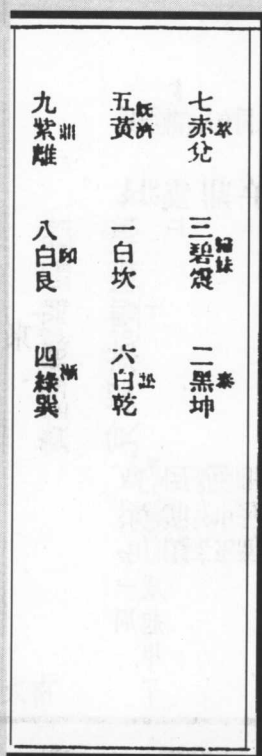 七赤兌 萃 三碧震 歸妹 二黑坤 泰
五黃 旣濟 一白坎 六白乾 訟
九紫離 鼎 八白艮 四綠巽 漸